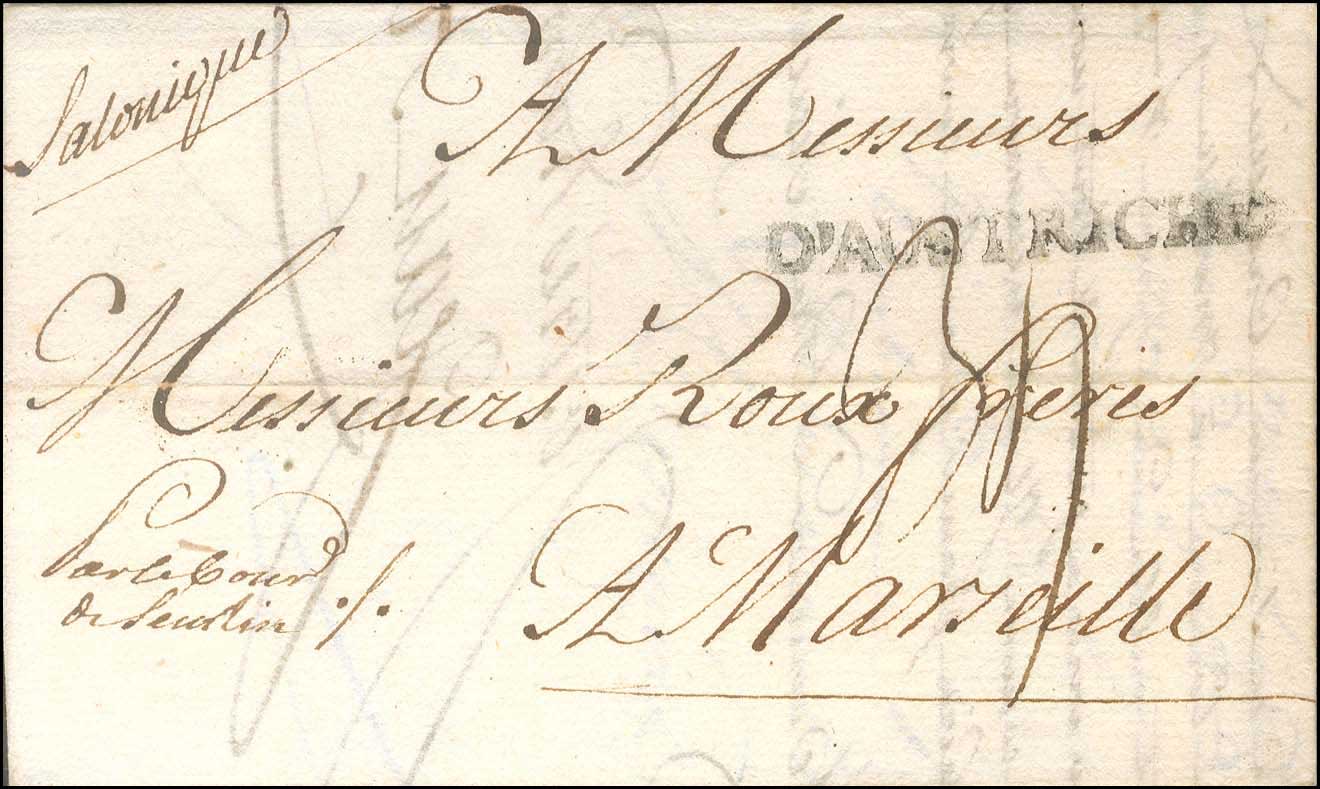 Salonique
A Messieurs
D'AUTRICHE
Messieurs Roux freres
Par le Cour
de Semlin ./.
A Marseille